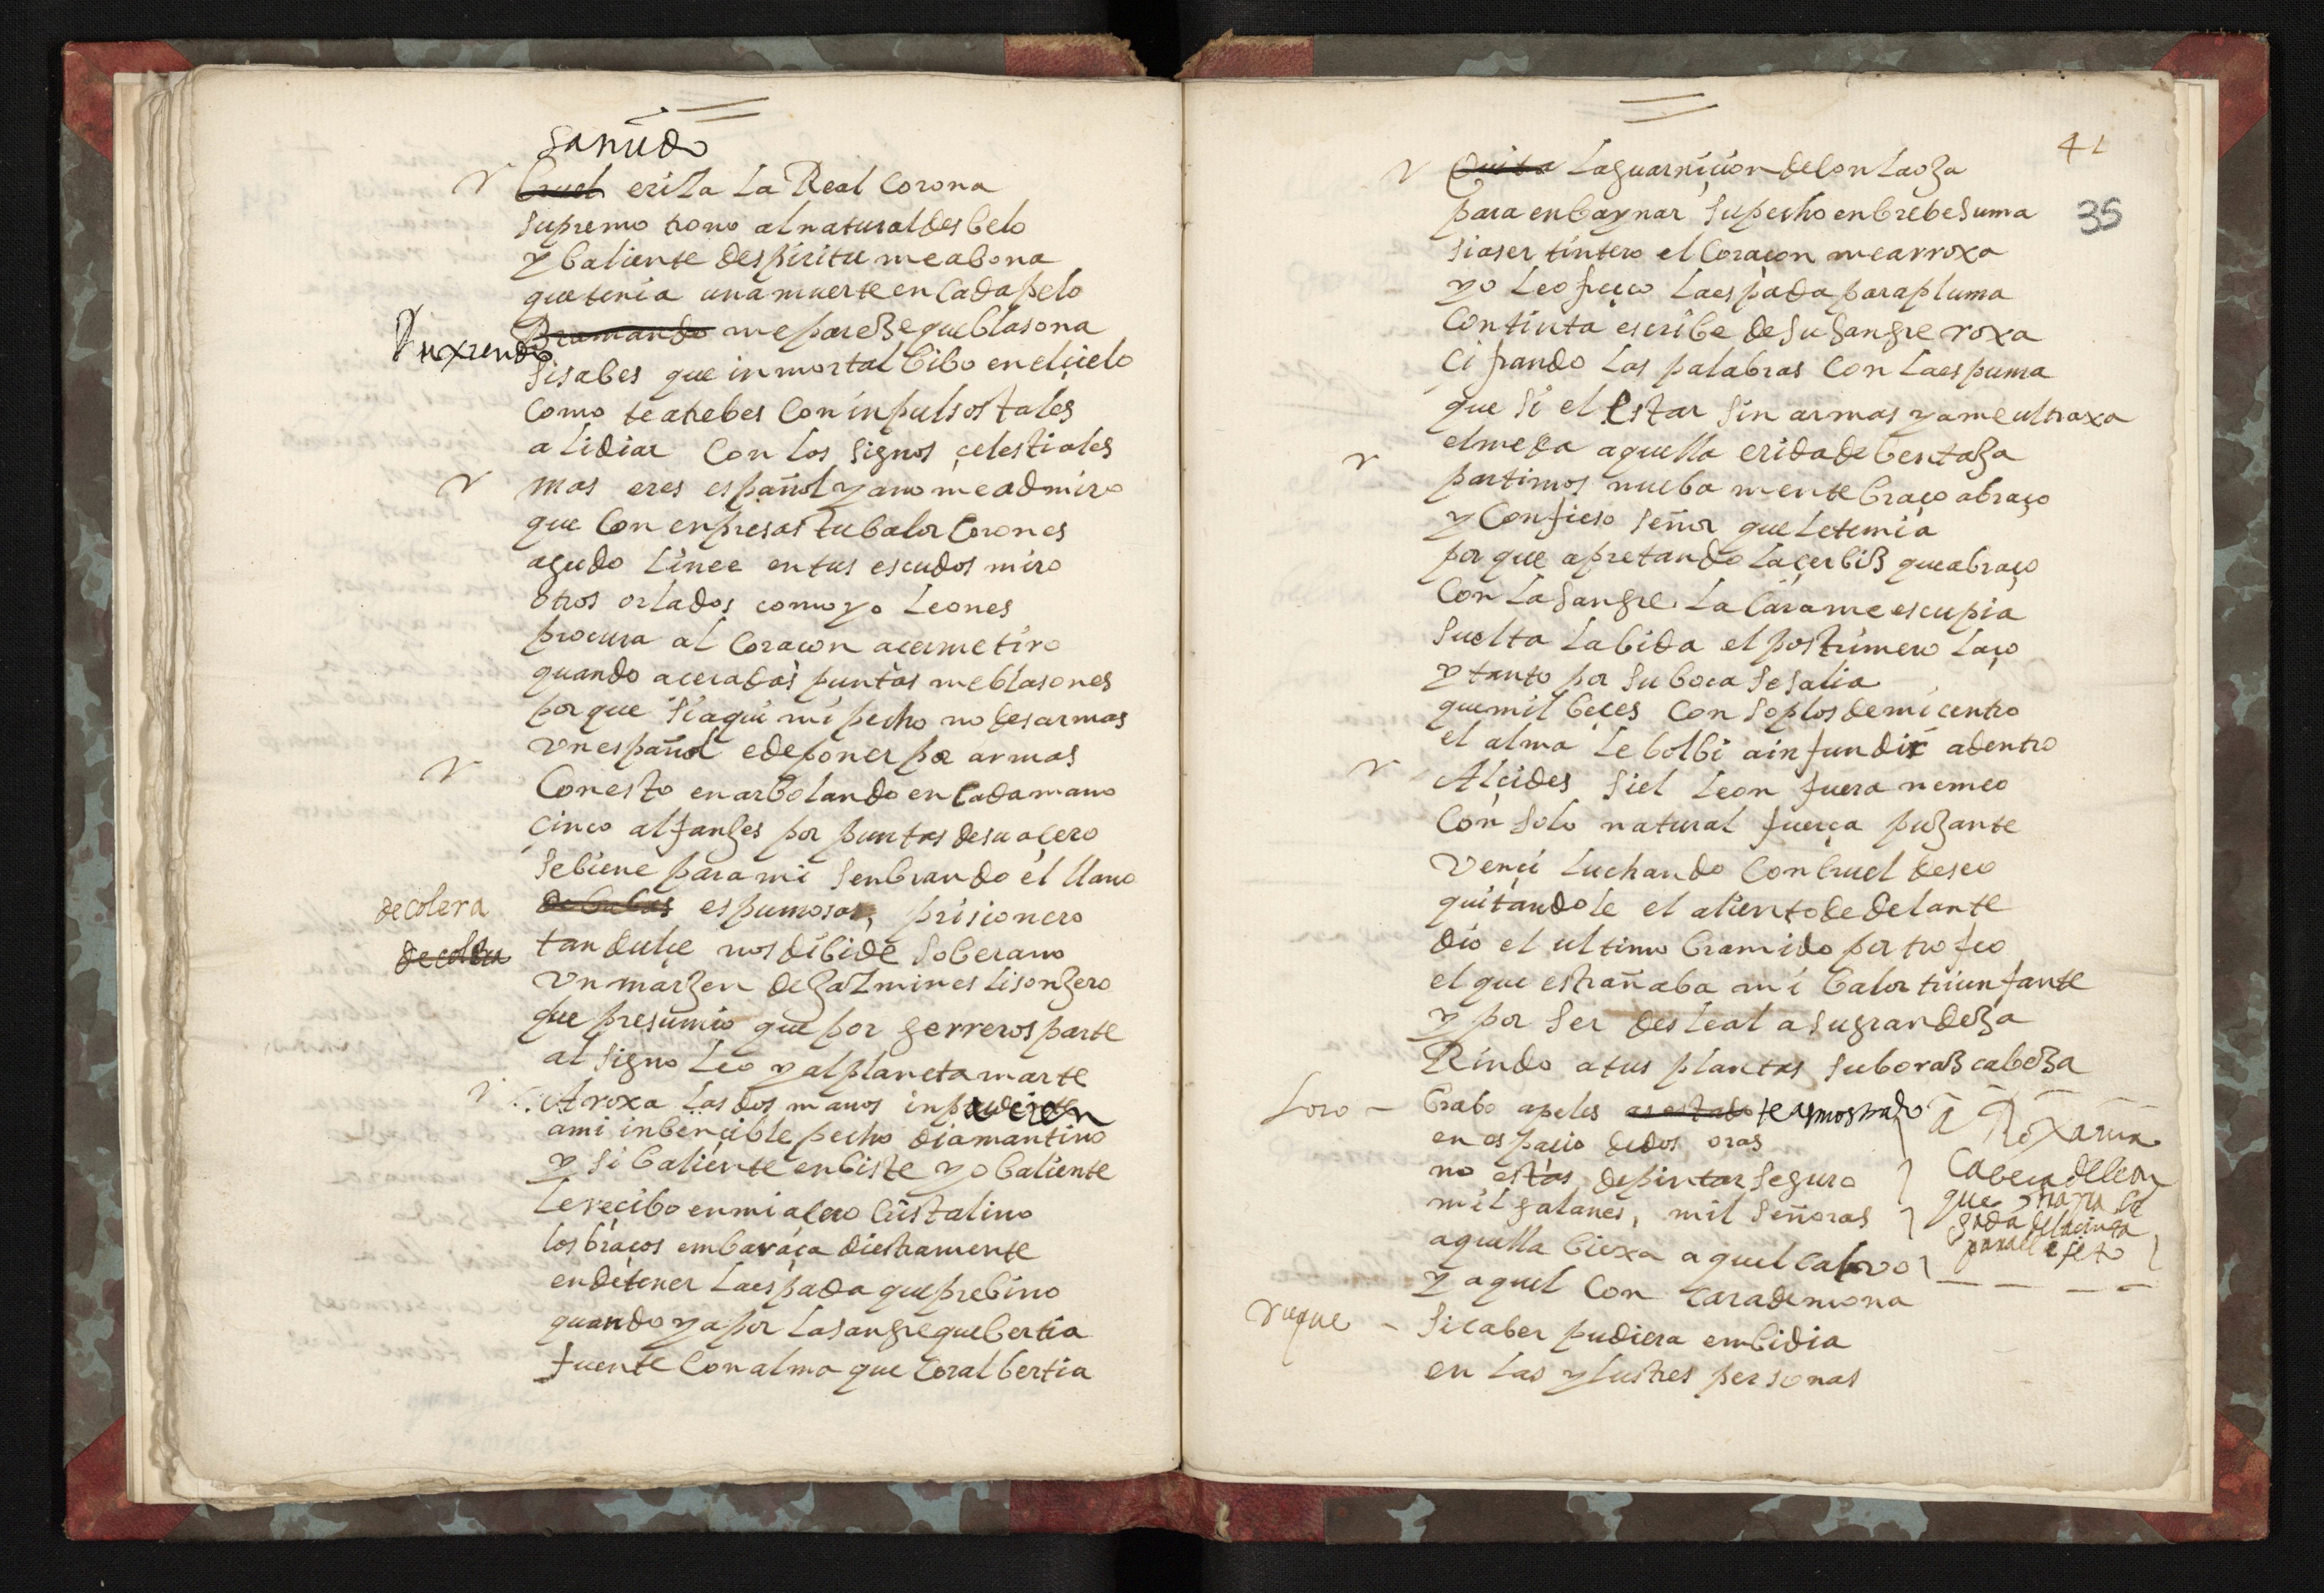 sañudo
Cruel eriza La Real Corona
supremo trono al natural desbelo
y baliente despiritu me abona
que tenia una muerte en Cada pelo
Bramando me pareze que blasona
Ruxiendo
si sabes que inmortal bibo en el çielo
como te atrebes Con inpulsos tales
a lidiar Con los signos çelestiales
mas eres español ya no me admiro
que Con enpresas tu balor Corones
agudo Linçe en tus escudos miro
otros orlados como yo Leones
procura al Coraçon açerme tiro
quando aceradas puntas me blasones
porque si aqui mi pecho no desarmas
un español e de poner por armas
Con esto enarbolando en Cada mano
çinco alfanges por puntas de su açero
se biene para mi senbrando el llano
de colera
de babas espumosas, prisionero
de colera
tan dulçe nos dibide soberano
Un margen de gazmines lisongero
que presumio que por gerreros parte
al signo Leo y al planeta marte
Aroxa las dos manos inpaciente
a mi inbençible pecho diamantino
y si baliente enbiste yo baliente
Le reçibo en mi açero Cristalino
los braços embaraça diestramente
en detener La espada que prebino
quando ya por La sangre que bertia
fuente Con alma que Coral bertia
41
35
Quita La guarniçion de Con La oga
para enbaynar su pecho en brebe suma
si a ser tintero el Coraçon me arroxa
yo Le ofreço La espada para pluma
Con tinta escribe de su sangre roxa
Cifrando Las palabras Con La espuma
que si el Estar sin armas ya me ultraxa
el me da aquella erida de bentaga
partimos nueba mente braço a braço
y Confieso señor que Le temia
por que apretando La çerbiz que abraço
Con La sangre La Cara me escupia
suelta La bida el postrimero Laço
y tanto por su boca se salia
que mil beçes Con soplos de mi centro
el alma Le bolbi a infundir adentro
Alçides si el Leon fuera nemeo
Con solo natural fuerça puxante
Vençi Luchando Con Cruel deseo
quitandole el aliento de delante
dio el ultimo bramido por trofeo
el que estrañaba mi balor triunfante
y por ser desleal a su grandeza
Rindo a tus plantas su boraz cabeza
Loro - brabo apeles as estado te as mostrado
en espaçio de dos oras
no estas de pintar seguro
mil galanes, mil señoras
aquella biexa aquel calvo
y aquel Con cara de mona
a Roxana
Cabeça de leon
que traira Col
gada de la çinta
para el efeto
roque - si caber pudiera embidia
en Las ylustres personas